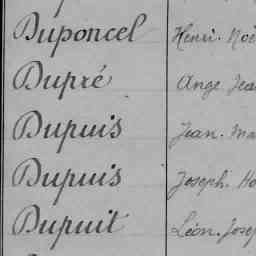 Duponcel Henri. Noë
Dupré Ange Jea
Dupuis Jean. Ma
Dupuis Joseph. Ho
Dupuit Léon. Josep